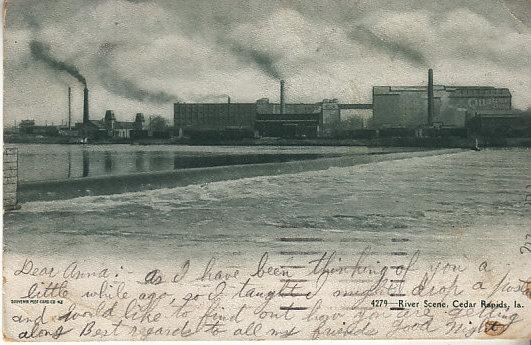 Dear Anna: as I have been thinking of you a
little while ago, so I taught I might drop a
4279—River Scene, Cedar Rapids, Ia.
SOUVENIR POST CARD CO. N.Y.
and would like to find out how you are getting
along Best regards to all my friends Good Night